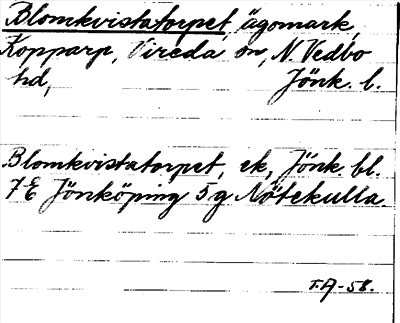 Blomkvistatorpet, ägomark,
Kopparp, Vireda sn, N. Vedbo
hd, Jönk. l.
Blomkvistatorpet, ek, Jönk. bl.
7E Jönköping 5g Nötekulla.
T.A-58.